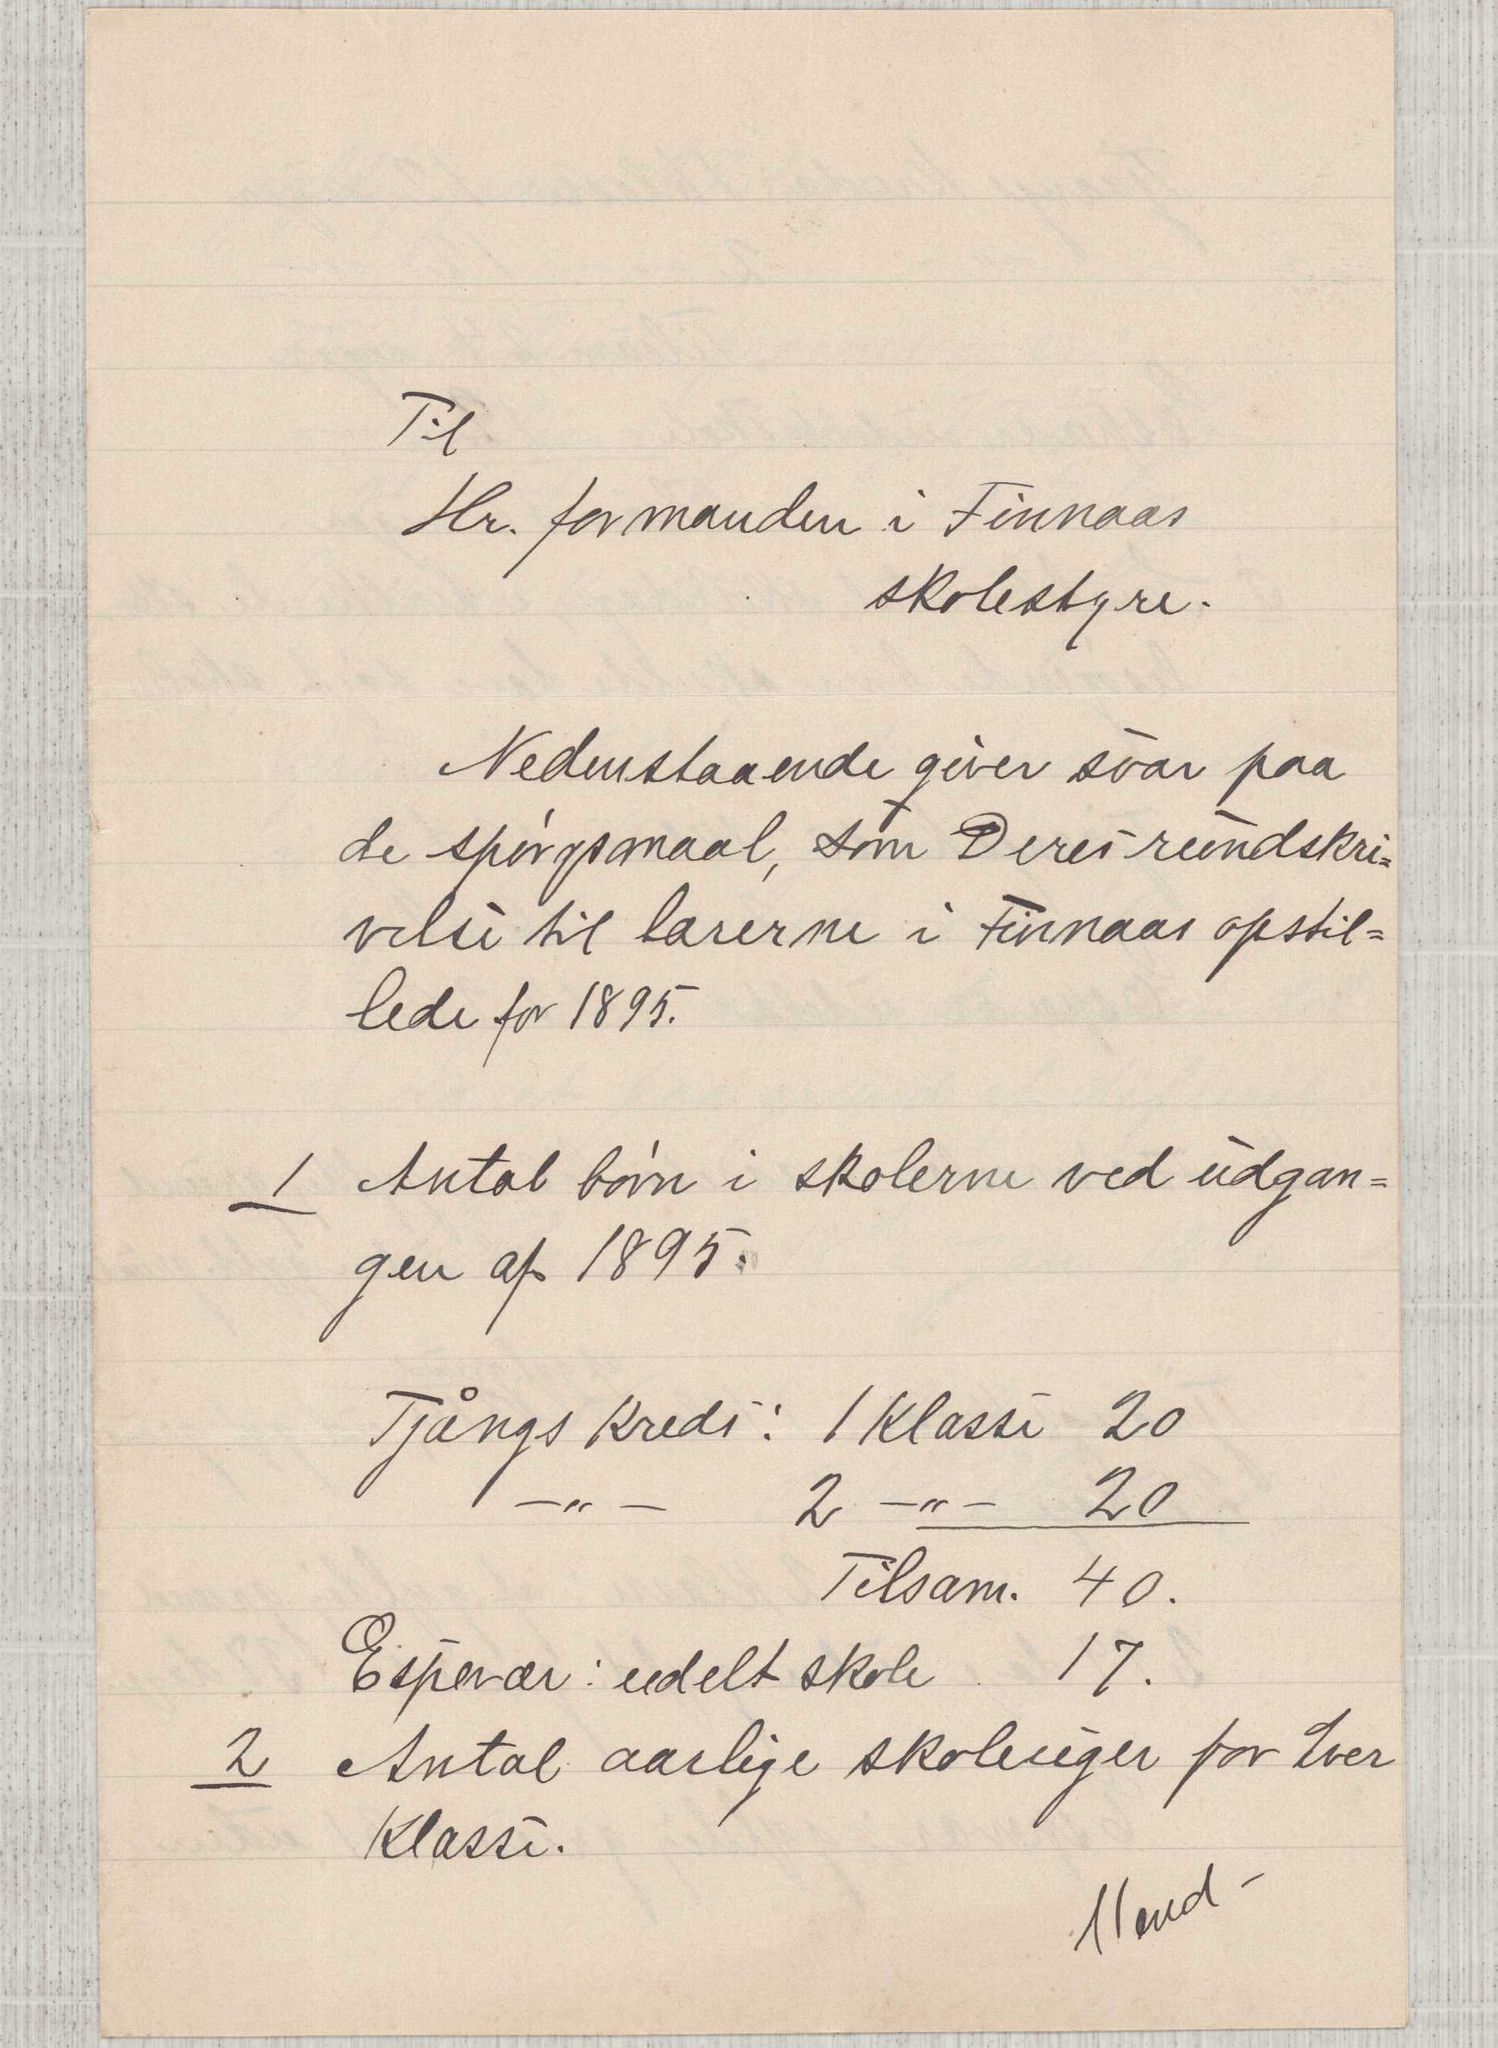 Til
Hr. formanden i Finnaas
skolestyre.
Nedenstaaende giver svar paa
de spørgsmaal, som Deres rundskri=
velse til lærerne i Finnaas opstil=
lede for 1895.
1 Antal børn i skolerne ved udgan=
gen af 1895.
Tjångs kreds: 1 klasse 20
—"— 2 —"— 20
Tilsam. 40.
Espevær: udelt skole 17.
2 Antal aarlige skoleuger for hver
klasse.
Vend-